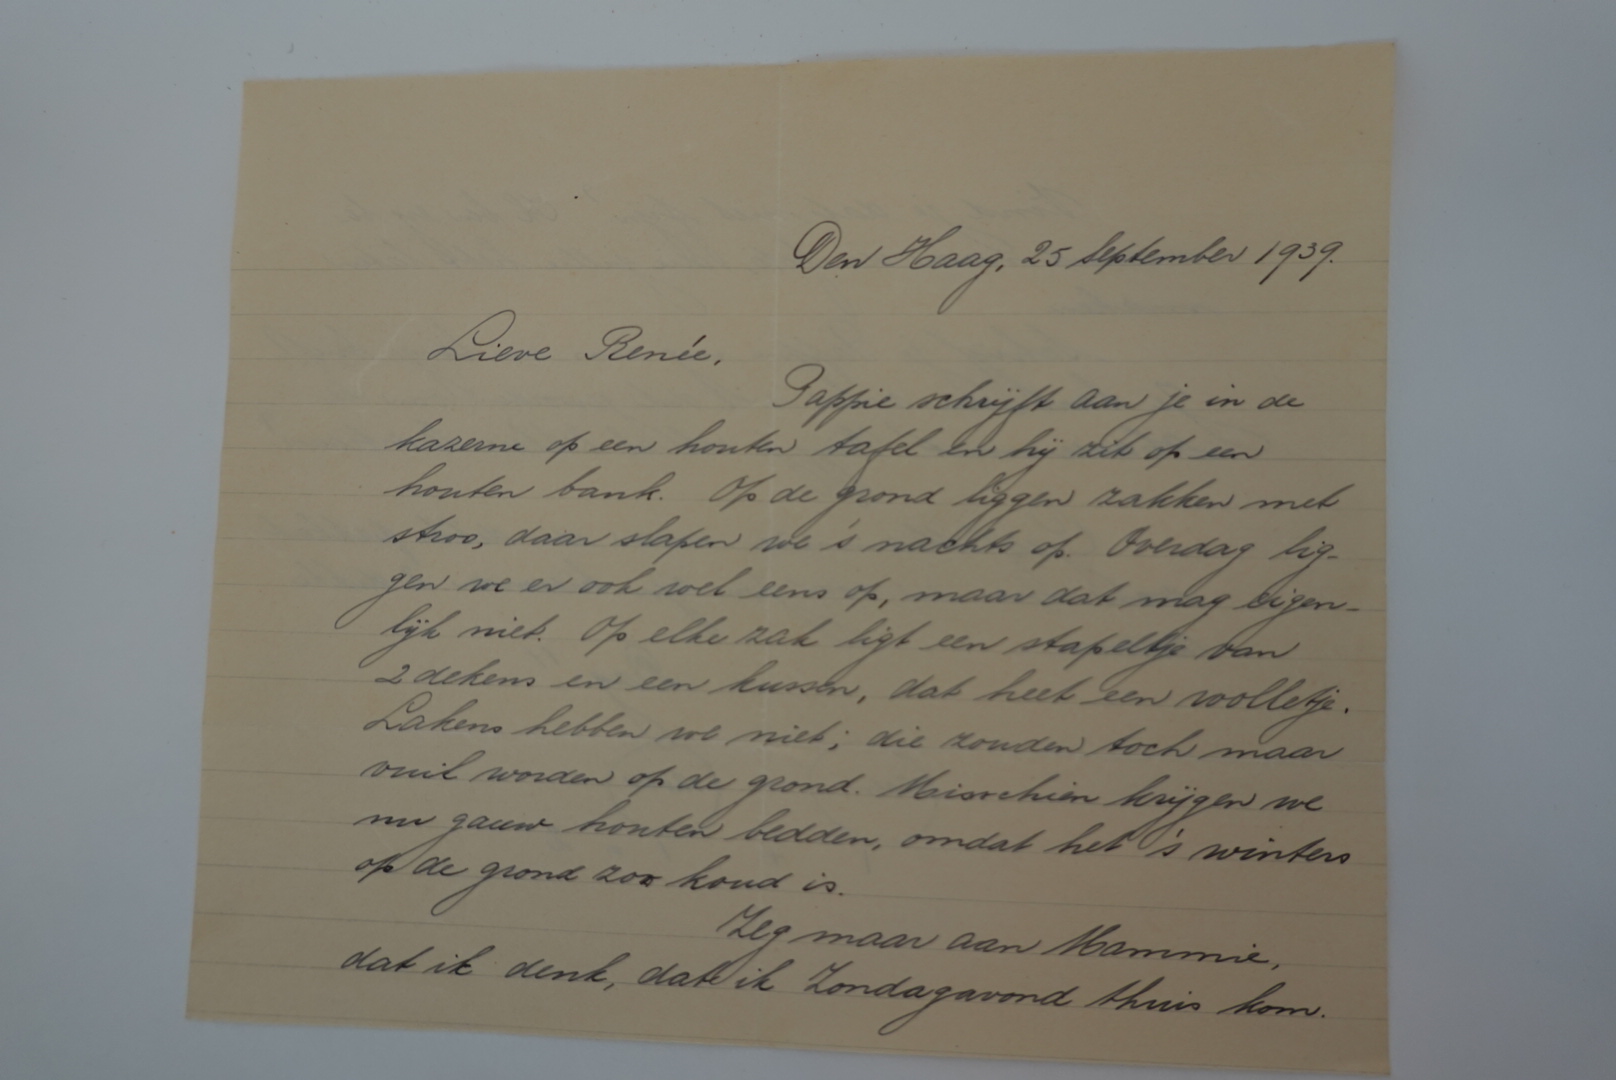 Den Haag, 25 September 1939.
Lieve Renée,
Pappie schrijft aan je in de
kazerne op een houten tafel en hij zit op een
houten bank. Op de grond liggen zakken met
stroo, daar slapen we 's nachts op. Overdag lig-
gen we er ook wel eens op, maar dat mag eigen-
lijk niet. Op elke zak ligt een stapeltje van
2 dekens en een kussen, dat heet een wolletje.
Lakens hebben we niet; die zouden toch maar
vuil worden op de grond. Misschien krijgen we
nu gauw houten bedden, omdat het 's winters
op de grond zoo koud is.
Zeg maar aan Mammie,
dat ik denk, dat ik Zondagavond thuis kom.